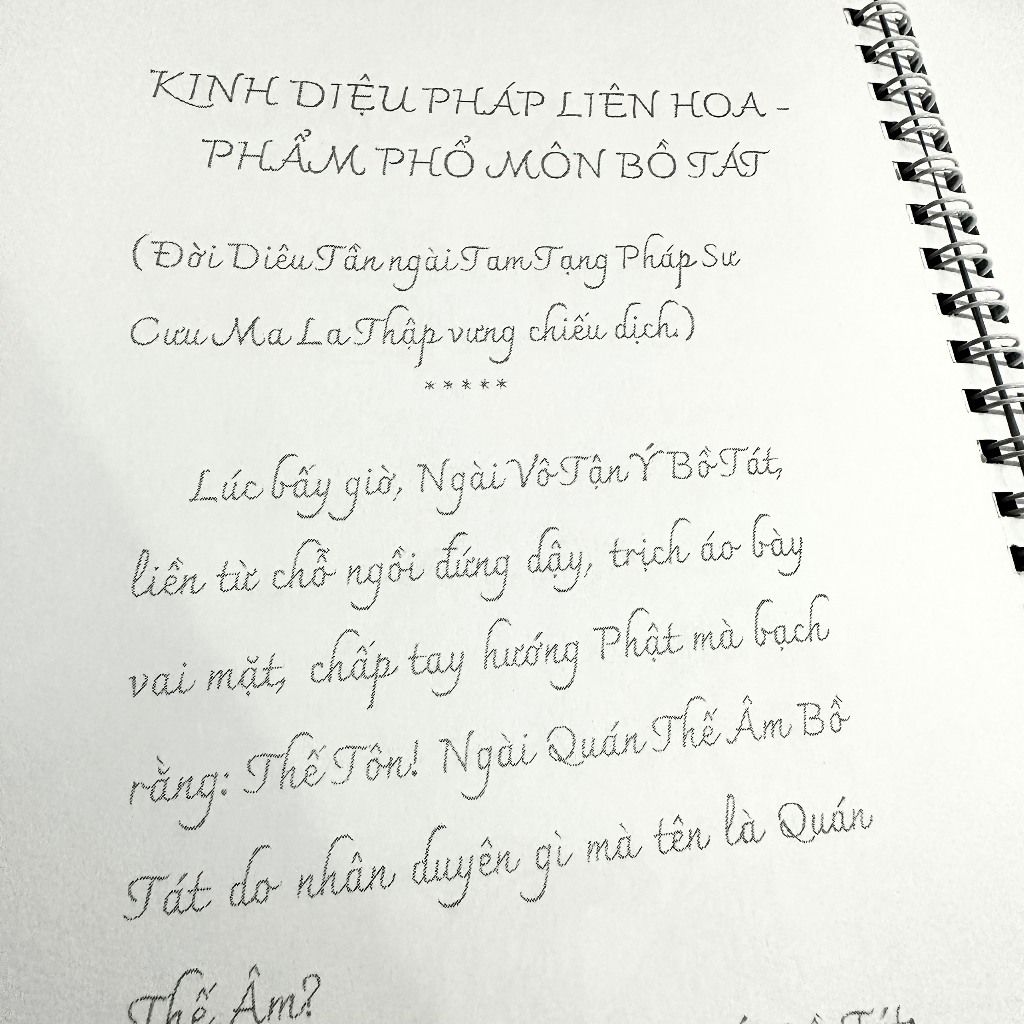 KINH DIỆU PHÁP LIÊN HOA -
PHẨM PHỔ MÔN BỒ TÁT
(Đời Diêu Tần ngài Tam Tạng Pháp Sư
Cưu Ma La Thập vưng chiếu dịch.)
* * * * *
Lúc bấy giờ, Ngài Vô Tận Ý Bồ Tát,
liền từ chỗ ngồi đứng dậy, trịch áo bày
vai mặt, chấp tay hướng Phật mà bạch
rằng: Thế Tôn! Ngài Quán Thế Âm Bồ
Tát do nhân duyên gì mà tên là Quán
Thế Âm?